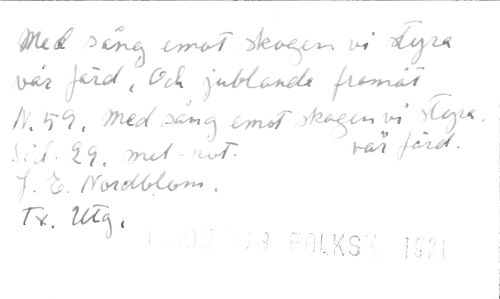 Med sång emot skogen vi styra
vår färd, Och jublande framåt
N. 59. Med sång emot skogen vi styra.
Sid. 29. mel-not. vår färd.
J. E. Nordblom.
Tx. Utg.
FOLKSK 1871